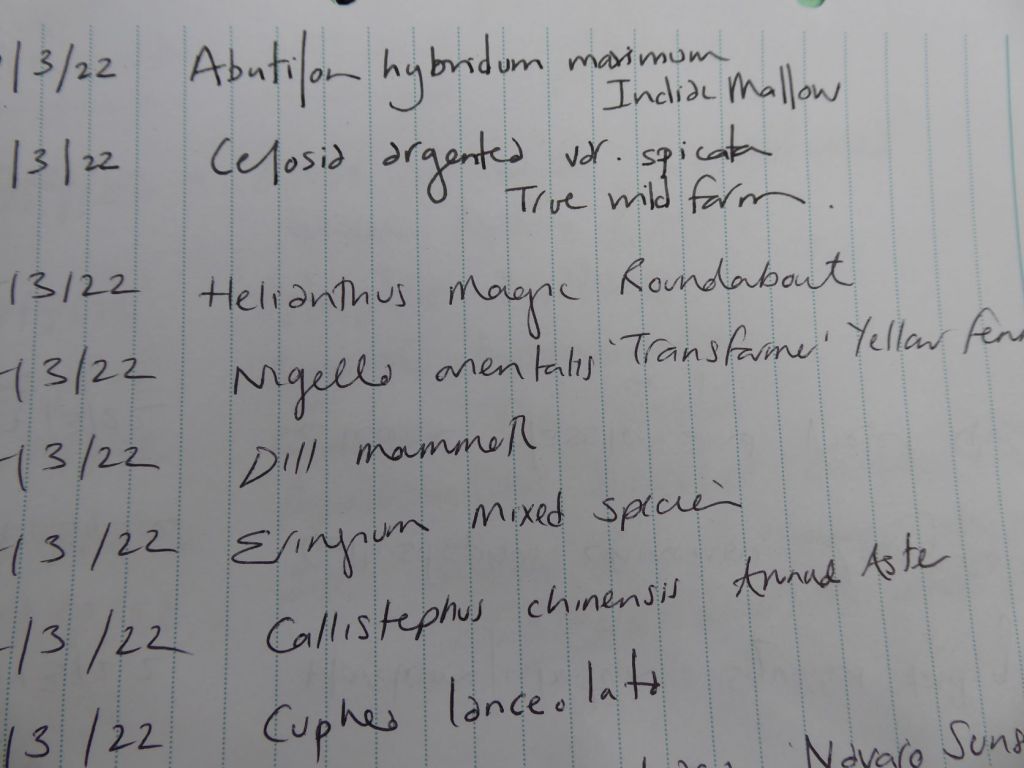 /3/22 Abutilon hybridum maximum
Indian Mallow
/3/22 Celosia argentea var. spicata
True wild form.
/3/22 Helianthus Magic Roundabout
/3/22 Nigella orientalis 'Transformer' Yellow fenn
/3/22 Dill mammoth
/3/22 Eringium mixed species
/3/22 Callistephus chinensis Annual Aster
/3/22 Cuphea lanceolata
Navaro Suns